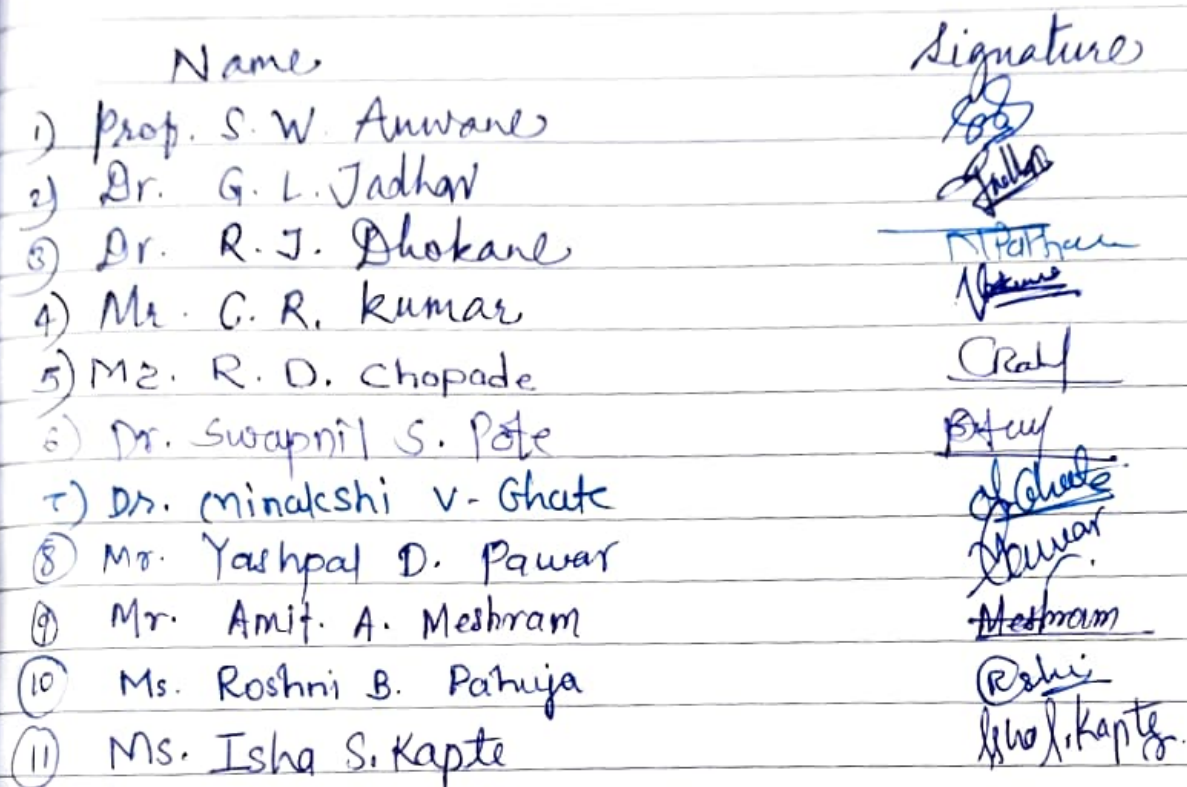 Name Signature
1) Prof. S. W. Anwane
2) Dr. G. L. Jadhav
3) Dr. R. J. Dhokane N Pathan
4) Mr. C. R. Kumar
5) Mr. R. D. Chopade
6) Dr. Swapnil S. Pote
7) Dr. Minakshi V- Ghate Ghate
8) Mr. Yashpal D. Pawar Pawar
9) Mr. Amit. A. Meshram Meshram
10) Ms. Roshni B. Pahuja
11) Ms. Isha S. Kapte Isha S. Kapte